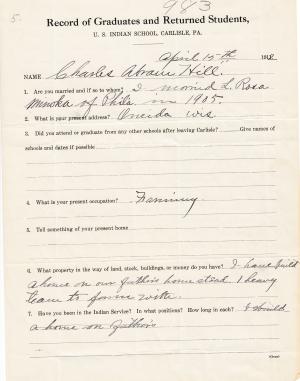 983
5.
Record of Graduates and Returned Students,
U. S. INDIAN SCHOOL, CARLISLE, PA.
April 15th 191
NAME Charles Abram Hill.
1. Are you married and if so to whom? I married L. Rosa
Minoka of Phila in 1905.
2. What is your present address? Oneida Wis
3. Did you attend or graduate from any other schools after leaving Carlisle? Give names
of schools and dates if possible
4. What is your present occupation? Farming
5. Tell something of your present home
6. What property in the way of land, stock, buildings, or money do you have? I have build
a home on our father's homestead. 1 heavy
team to farm with.
7. Have you been in the Indian Service? In what positions? How long in each? I build
a home on father's
(Over)